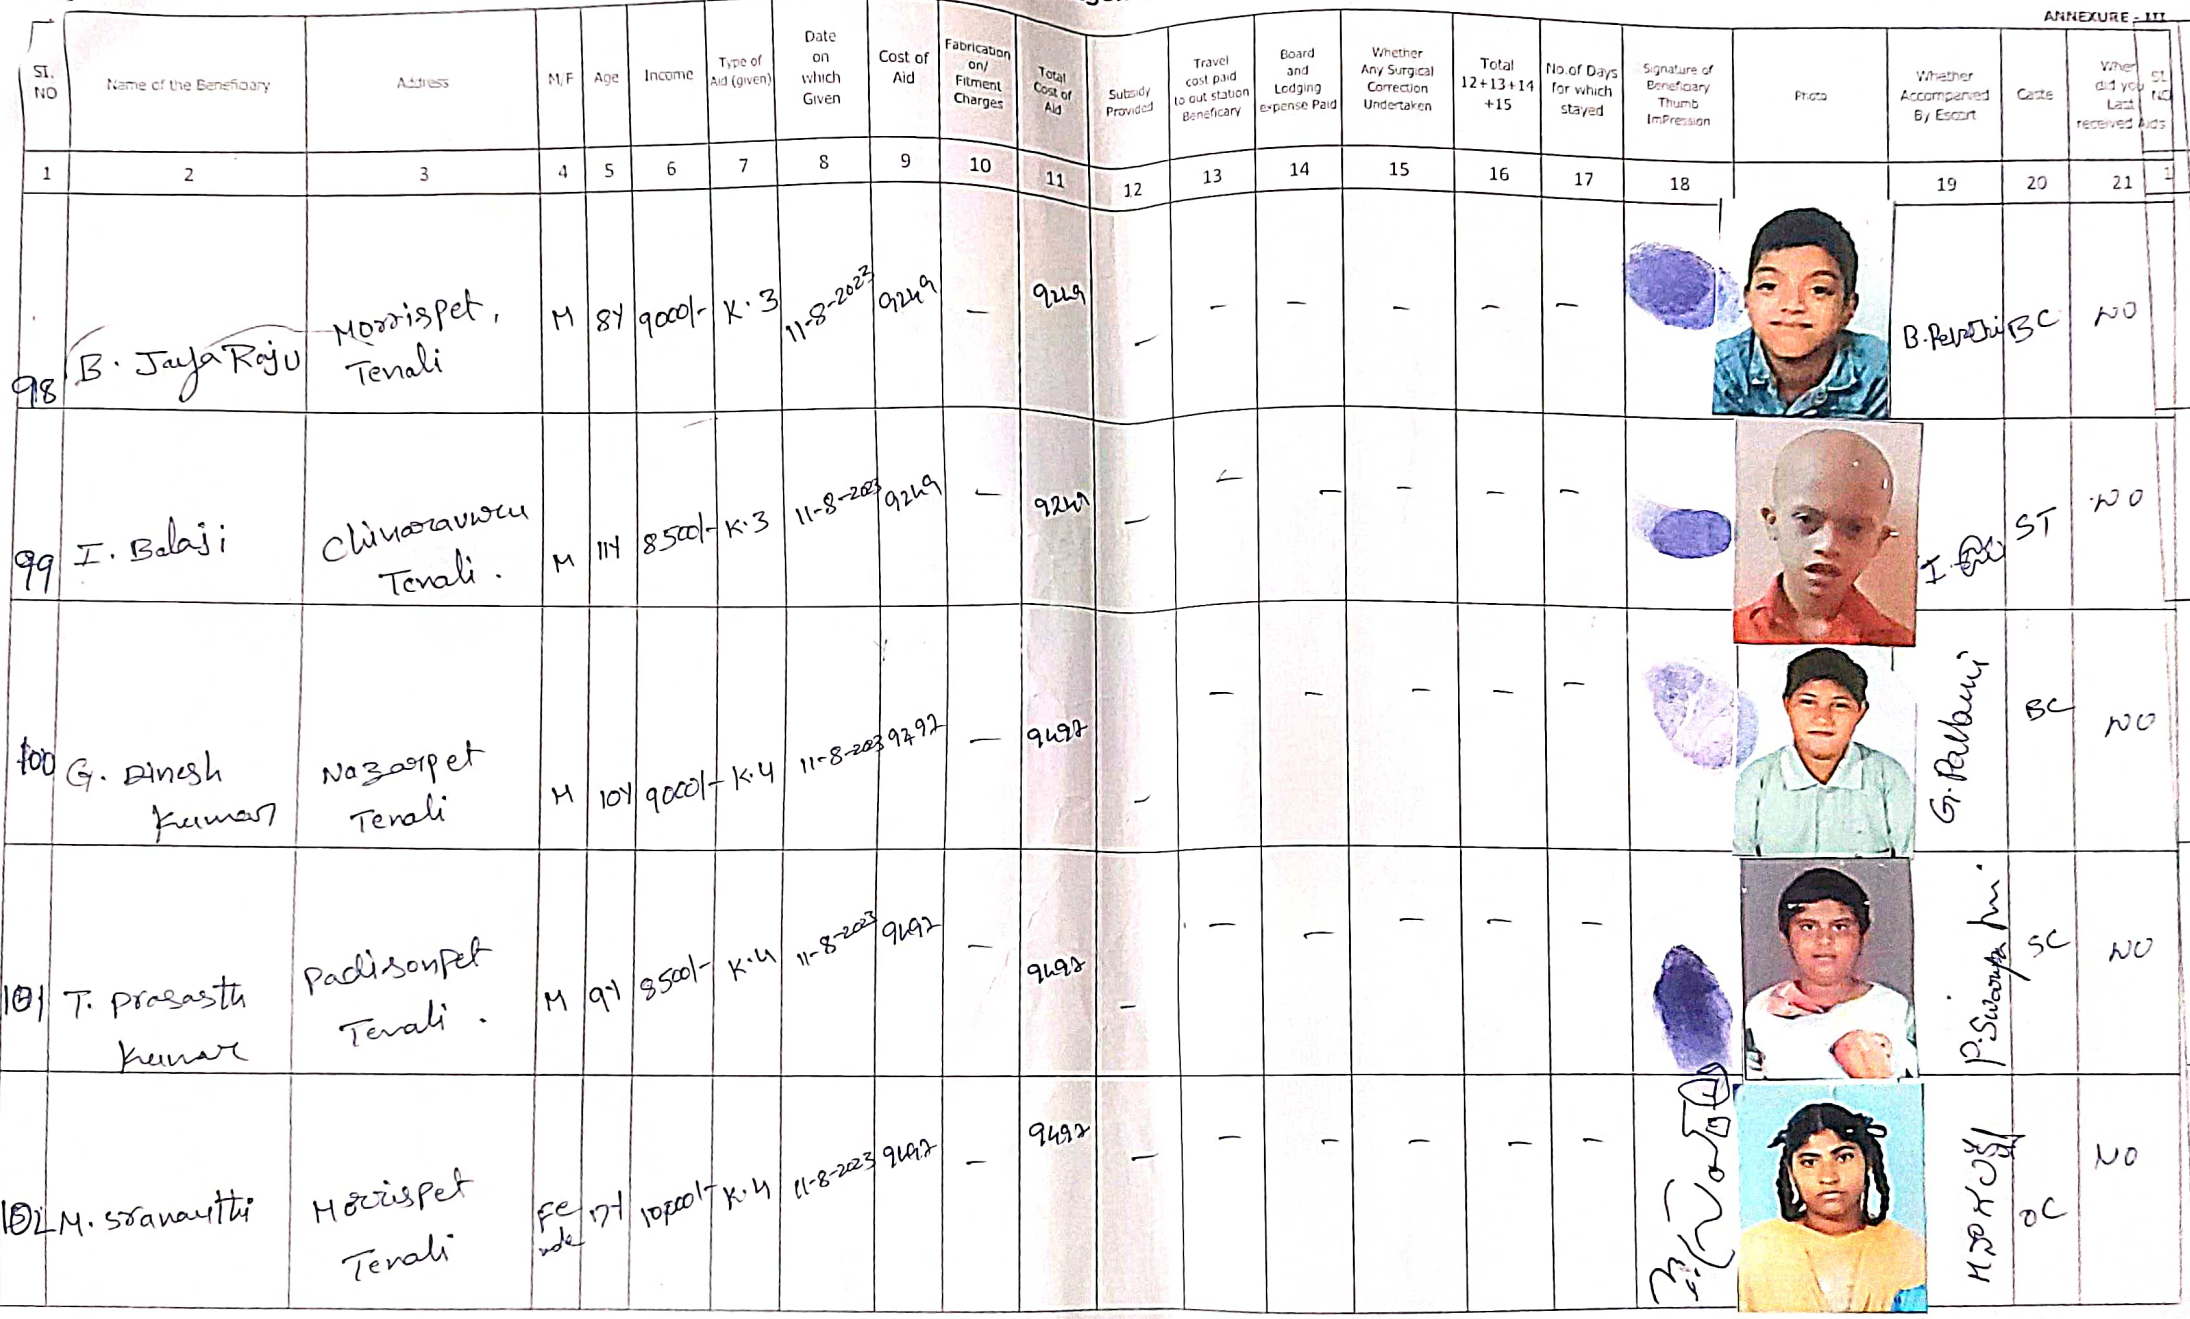 ANNEXURE - III
SI. NO
Name of the Beneficiary
Address
M/F
Age
Income
Type of Aid (given)
Date on which Given
Cost of Aid
Fabrication on/ Fitment Charges
Total Cost of Aid
Subsidy Provided
Travel cost paid to out station Beneficary
Board and Lodging expense Paid
Whether Any Surgical Correction Undertaken
Total 12+13+14 +15
No.of Days for which stayed
Signature of Beneficiary Thumb ImPression
Photo
Whather Accompanied By Escort
Caste
When did you Last received Aids
SI. NO
1 2 3 4 5 6 7 8 9 10 11 12 13 14 15 16 17 18 19 20 21 1
98 B. Jaya Raju Morrispet, Tenali M 8Y 9000/- K.3 11-8-2023 9249 — 9249 — — — — — — BC NO
99 I. Balaji Chinaravuru Tenali. M 11Y 8500/- K.3 11-8-2023 9249 — 9249 — — — — — — ST NO
100 G. Dinesh Kumar Nazarpet Tenali M 10Y 9000/- K.4 11-8-2023 — 9497 — — — — — — G. Pallavi BC NO
101 T. Prasasth Kumar Padisonpet Tenali. M 9Y 8500/- K.4 11-8-2023 9497 — 9497 — — — — — — P. Swarupa SC NO
102 M. Sranavthi Morrispet Tenali Female 17Y K.4 11-8-2023 9497 — 9497 — — — — — — OC NO